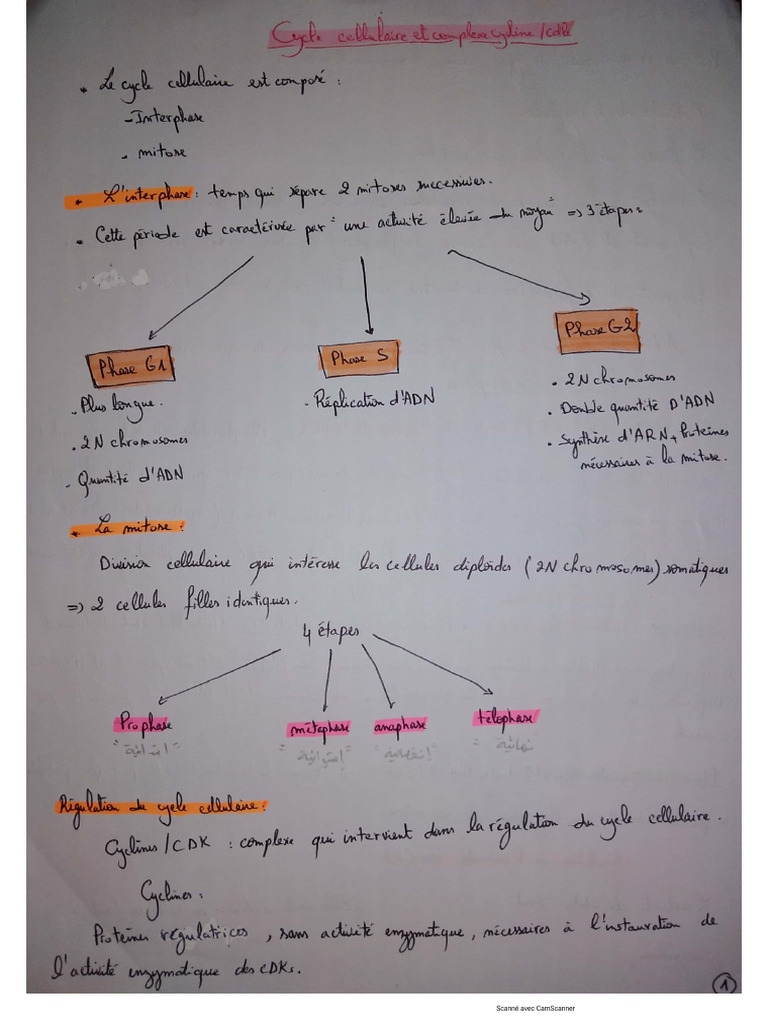 Cycle cellulaire et complexe cycline/cdk
• Le cycle cellulaire est composé :
- Interphase
- mitose
* L'interphase : temps qui sépare 2 mitoses successives.
• Cette période est caractérisée par "une activité élevée du noyau" => 3 étapes :
Phase G1
Phase S
Phase G2
• Plus longue.
• 2N chromosomes
- Quantité d'ADN
- Réplication d'ADN
• 2N chromosomes
• Double quantité D'ADN
• Synthèse d'ARN + Protéines
nécessaires à la mitose.
* La mitose :
Division cellulaire qui intéresse les cellules diploïdes (2N chromosomes) somatiques
=> 2 cellules filles identiques.
4 étapes
Prophase métaphase anaphase télophase
"ابتدائية" "إستوائية" "إنفصالية" "نهائية"
Régulation du cycle cellulaire :
Cyclines/CDK : complexe qui intervient dans la régulation du cycle cellulaire.
Cyclines :
Protéines régulatrices, sans activité enzymatique, nécessaires à l'instauration de
l'activité enzymatique des CDKs.
1
Scanné avec CamScanner